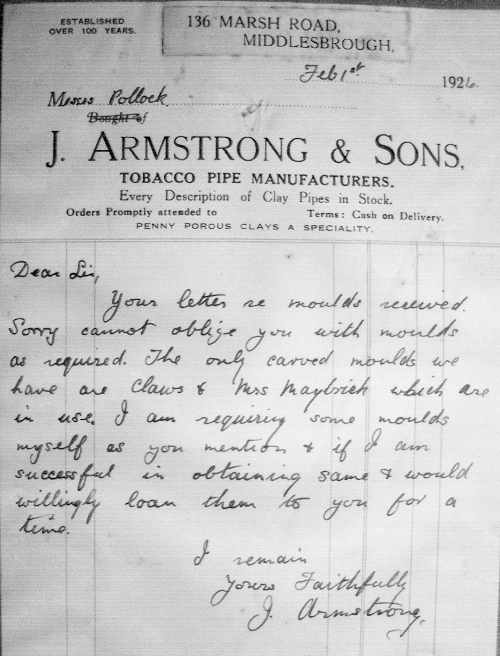 ESTABLISHED
OVER 100 YEARS.
136 MARSH ROAD,
MIDDLESBROUGH,
Feb 1st 1926.
Messrs Pollock
Bought of
J. ARMSTRONG & SONS,
TOBACCO PIPE MANUFACTURERS.
Every Description of Clay Pipes in Stock.
Orders Promptly attended to Terms: Cash on Delivery.
PENNY POROUS CLAYS A SPECIALITY.
Dear Sir,
Your letter re moulds received.
Sorry cannot oblige you with moulds
as required. The only carved moulds we
have are Claws & Mrs Maybrick which are
in use. I am requiring some moulds
myself as you mention & if I am
successful in obtaining same I would
willingly loan them to you for a
time.
I remain
Yours Faithfully
J. Armstrong.